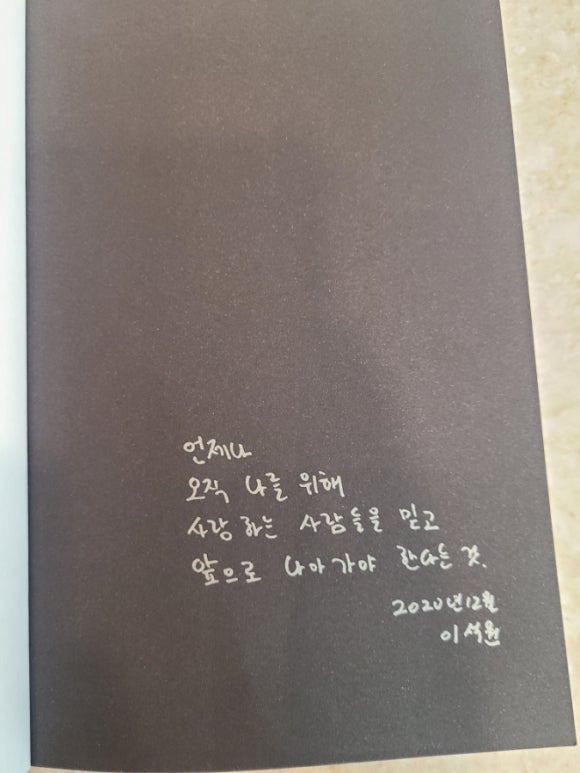 언제나
오직 나를 위해
사랑하는 사람들을 믿고
앞으로 나아가야 한다는 것.
2020년 12월
이석원